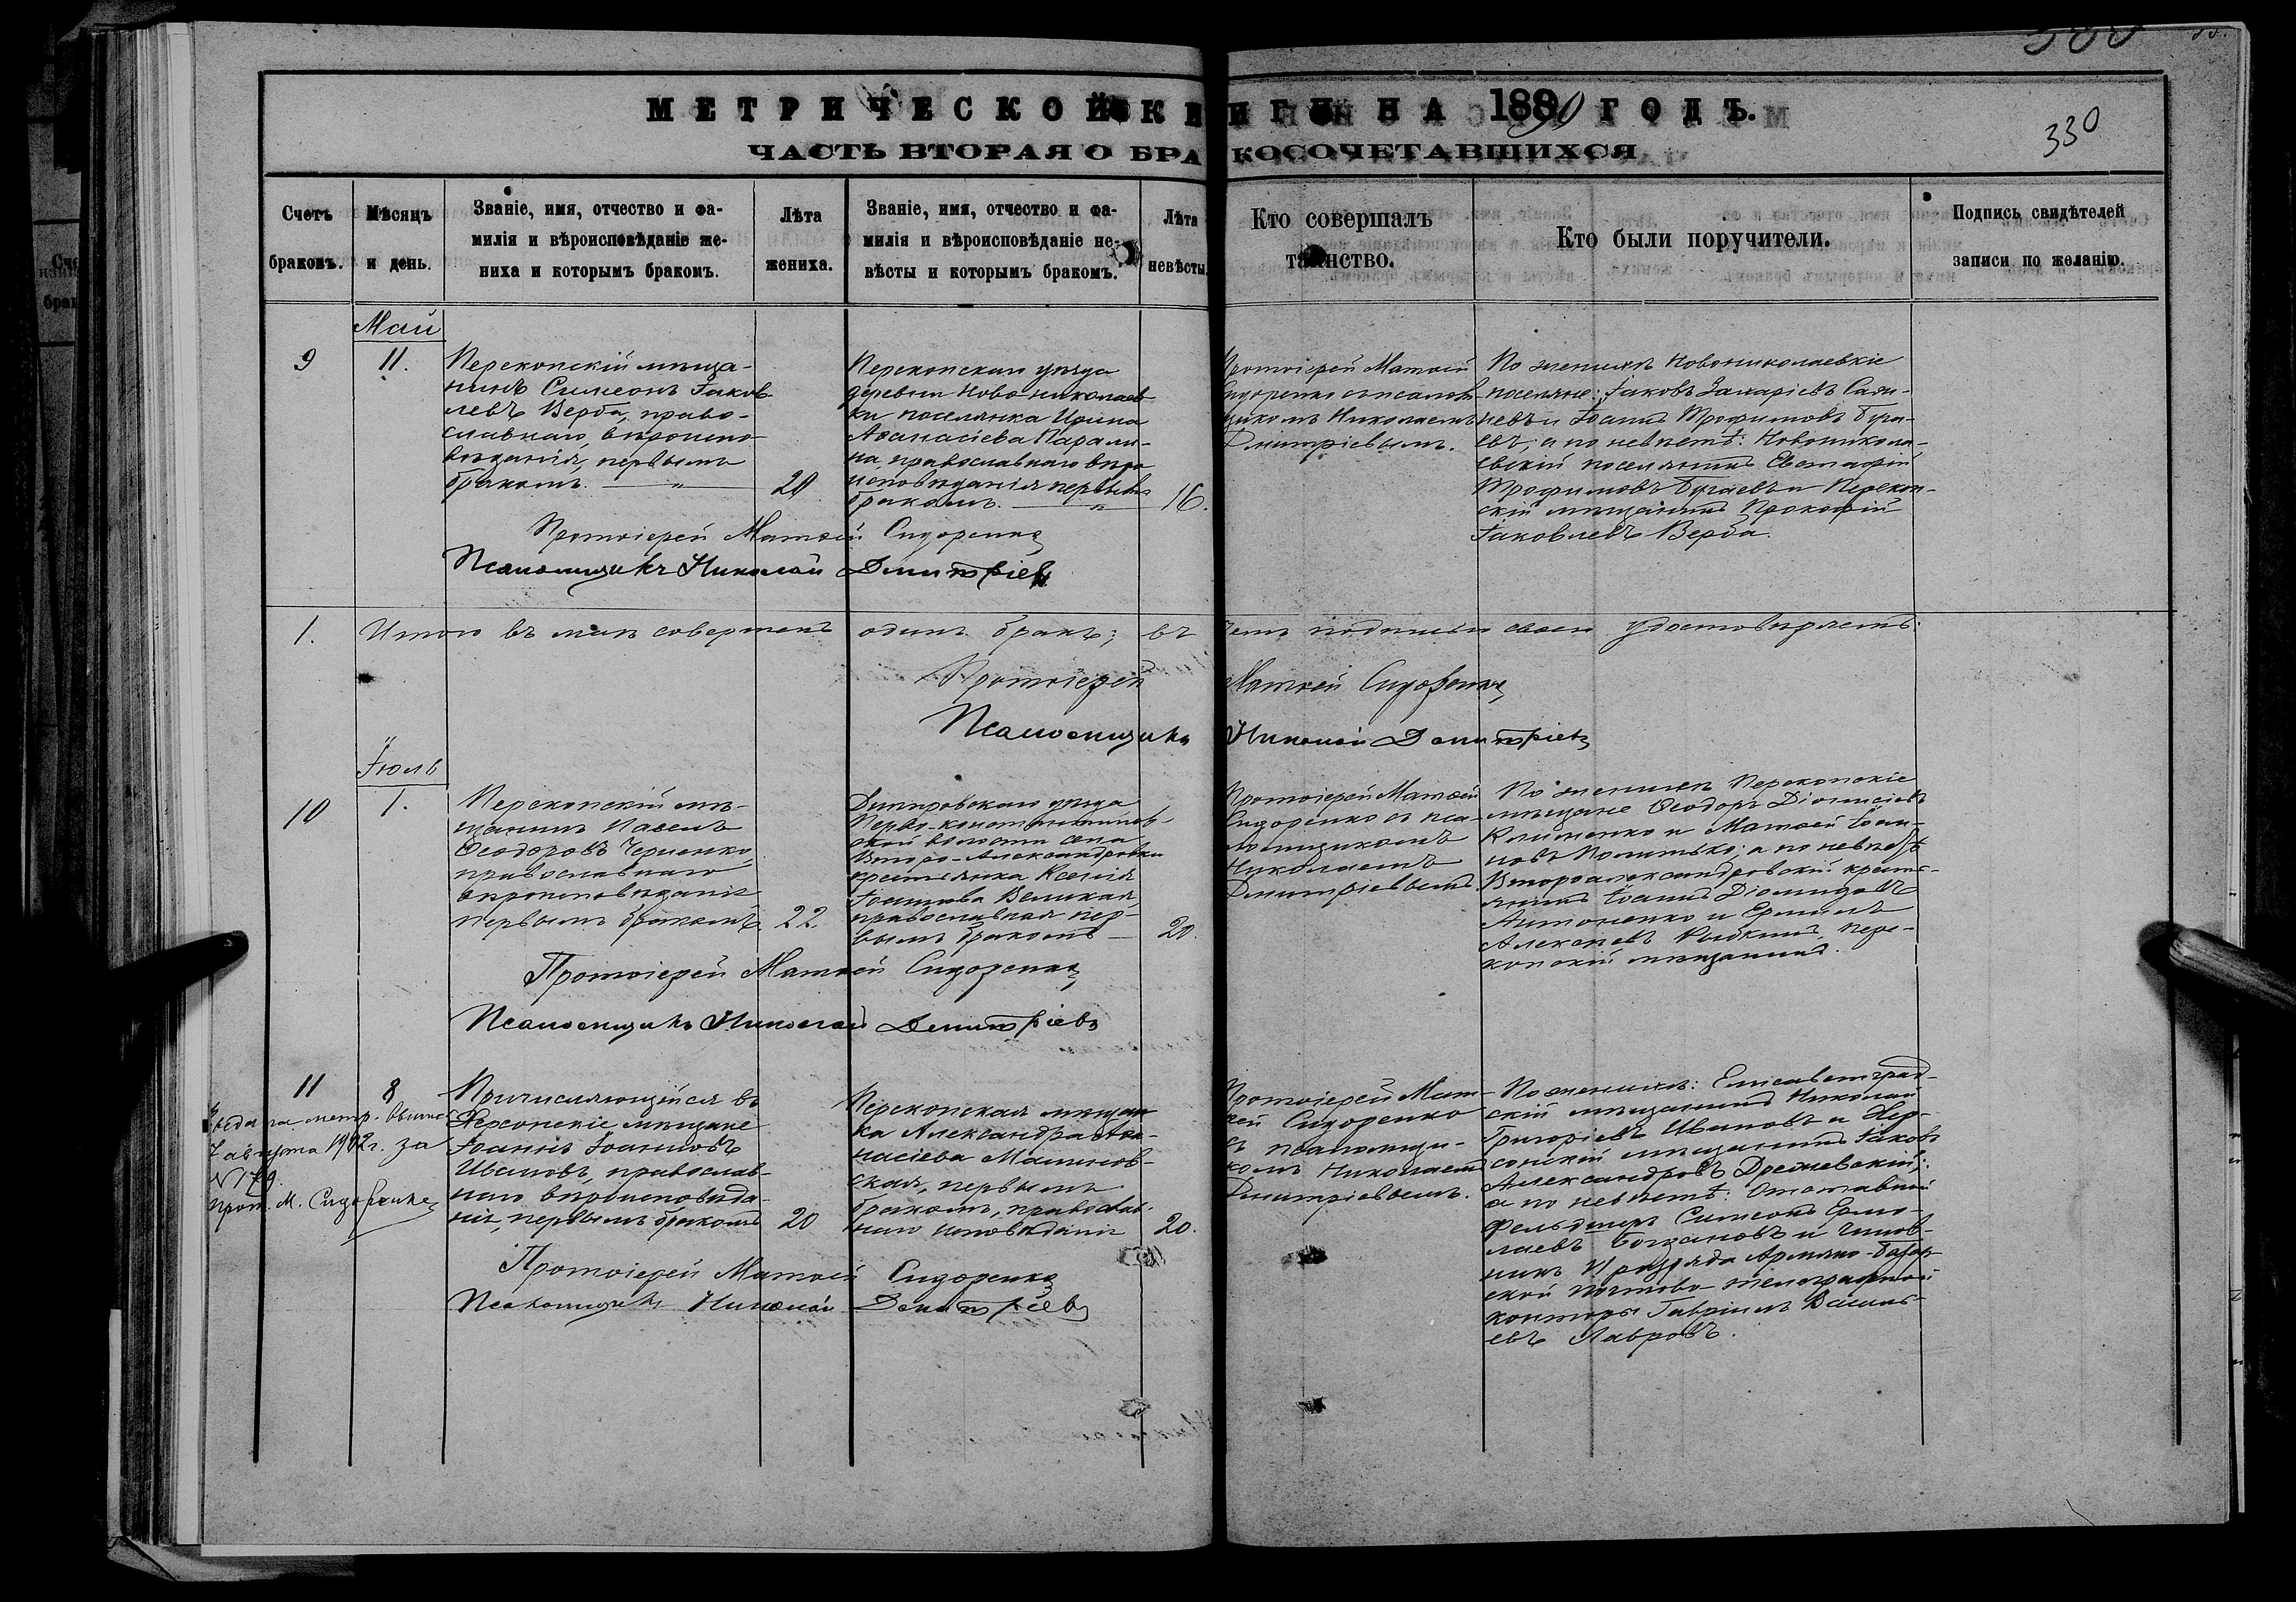 МЕТРИЧЕСКОЙ КНИГИ НА 1890 ГОДЪ.
330
ЧАСТЬ ВТОРАЯ О БРАКОСОЧЕТАВШИХСЯ
Счетъ браковъ.
Мѣсяцъ и день.
Званіе, имя, отчество и фа-
милія и вѣроисповѣданіе же-
ниха и которымъ бракомъ.
Лѣта
жениха.
Званіе, имя, отчество и фа-
милія и вѣроисповѣданіе не-
вѣсты и которымъ бракомъ.
Лѣта
невѣсты.
Кто совершалъ
таинство.
Кто были поручители.
Подпись свидѣтелей
записи по желанію.
Май
9
11.
Перекопскій мѣща-
нинъ Симеонъ Іаков-
левъ Верба, право-
славнаго вѣроиспо-
вѣданія, первымъ
бракомъ. — „ —
20
Перекопскаго уѣзда
деревни Ново-николаев-
ки поселянка Ирина
Аѳанасіева
на, православнаго вѣро
исповѣданія первымъ
бракомъ. — „ —
16.
Протоіерей Матѳей
Сидоренко съ псалом-
щикомъ Николаемъ
Дмитріевымъ.
По женихѣ Новониколаевкіе
поселяне: Іаковъ Захаріевъ
невъ и Іоаннъ Трофимовъ Буга-
евъ; а по невѣстѣ: Новоникола-
евскій поселянинъ Евстафій
Трофимовъ Бугаевъ и Перекоп-
скій мѣщанинъ Прокофій
Іаковлевъ Верба.
Протоіерей Матѳей Сидоренко
Псаломщикъ Николай Дмитріевъ
1. Итого въ маѣ совершенъ одинъ бракъ; въ чемъ подписью своею удостовѣряетъ:
Протоіерей Матѳей Сидоренко
Псаломщикъ Николай Дмитріевъ
Іюль
10
1.
Перекопскій мѣ-
щанинъ Павелъ
Ѳеодоровъ Черненко,
православнаго
вѣроисповѣданія
первымъ бракомъ.
22.
Днѣпровскаго уѣзда
Перво-константинов-
ской волости села
Второ-Александровки
крестьянка Ксенія
Іоаннова Великая,
православная пер-
вымъ бракомъ —
20.
Протоіерей Матѳей
Сидоренко съ пса-
ломщикомъ
Николаемъ
Дмитріевымъ.
По женихѣ Перекопскіе
мѣщане Ѳеодоръ Діонисіевъ
Клименко и Матѳей Іоан-
новъ; а по невѣстѣ
Второалександровскій кресть-
янинъ Іоаннъ Діомидовъ
Антоненко и Ермилъ
Алексѣевъ Рыбкинъ, пере-
копскій мѣщанинъ.
Протоіерей Матѳей Сидоренко
Псаломщикъ Николай Дмитріевъ
11
8
Выдана метр. выпись
7 августа 1902 г. за
№ 179.
прот. М. Сидоренко
Причисляющійся въ
Херсонскіе мѣщане
Іоаннъ Іоанновъ
Ивановъ, православ-
наго вѣроисповѣда-
нія, первымъ бракомъ
20
Перекопская мѣщан
ка Александра Аѳа-
насіева Малинов-
ская, первымъ
бракомъ, православ-
наго исповѣданія
20.
Протоіерей Мат-
ѳей Сидоренко
съ псаломщи-
комъ Николаемъ
Дмитріевымъ.
По женихѣ: Елисаветград-
скій мѣщанинъ Николай
Григоріевъ Ивановъ и Хер-
сонскій мѣщанинъ Іаковъ
Александровъ Држевскій;
а по невѣстѣ: Отставной
фельдшеръ Симеонъ Ермо-
лаевъ и чинов-
никъ разряда Армяно-базар-
ской почтово-телеграфной
конторы Гавріилъ Василь-
евъ Лавровъ.
Протоіерей Матѳей Сидоренко
Псаломщикъ Николай Дмитріевъ